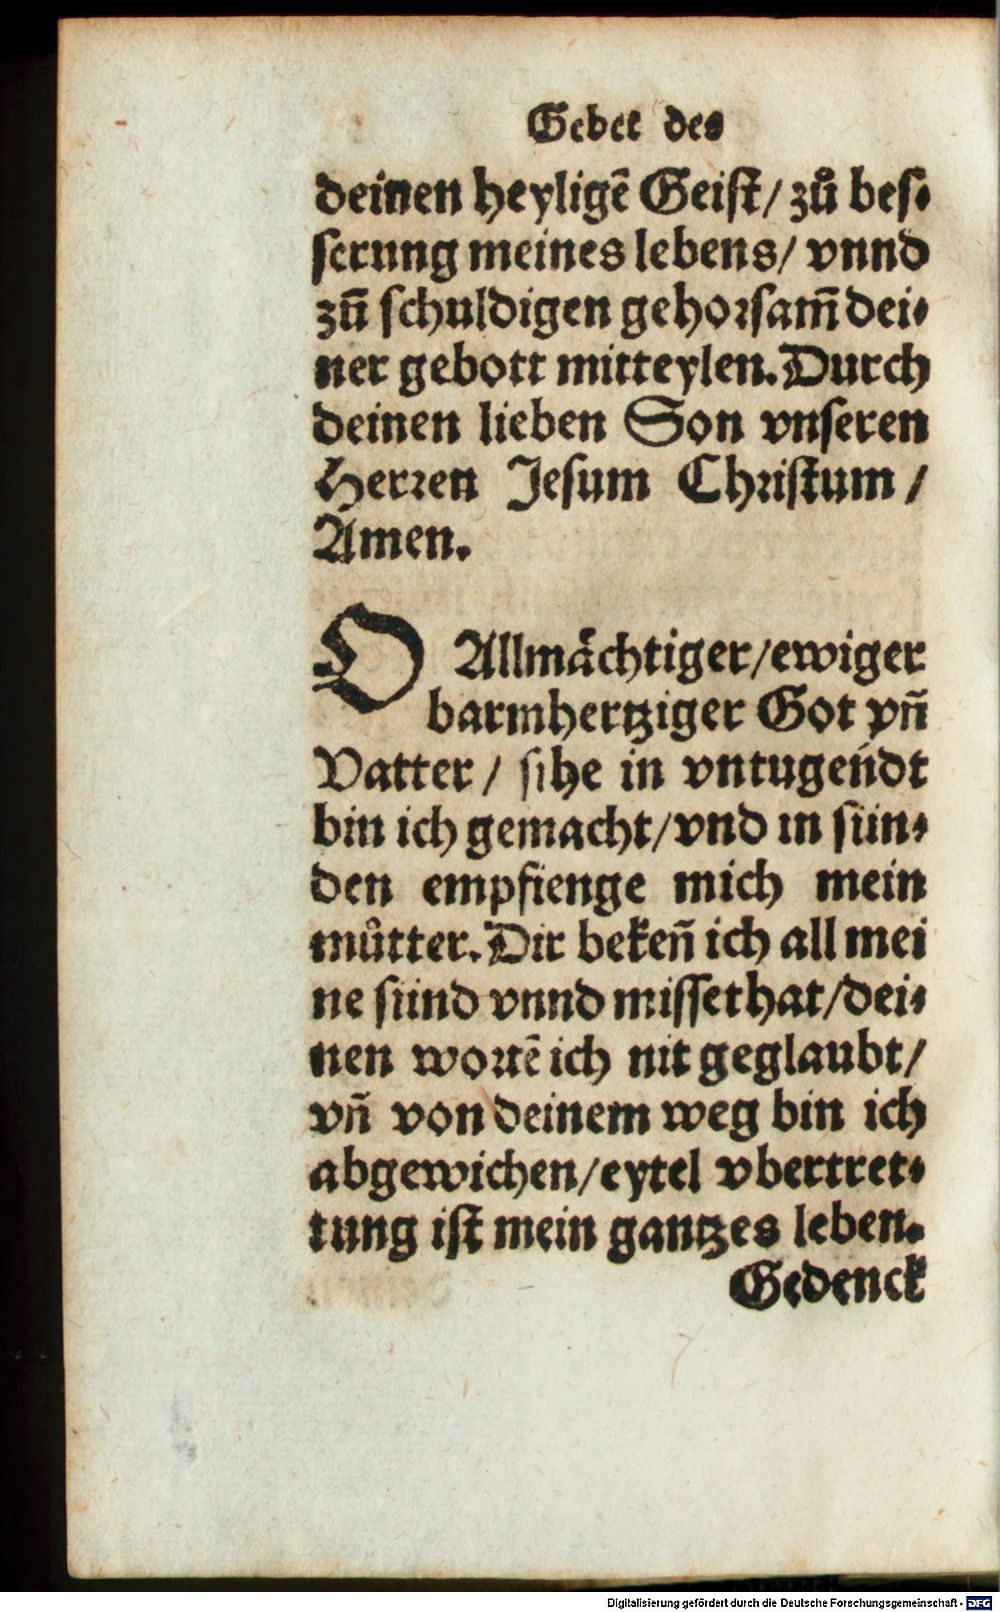 Gebet des
deinen heyligē Geist/ zů bes⸗
serung meines lebens/ vnnd
zū schuldigen gehorsam̄ dei⸗
ner gebott mitteylen. Durch
deinen lieben Son vnseren
Herren Jesum Christum /
Amen.
O Allmächtiger/ewiger
barmhertziger Got vn̄
Vatter / sihe in vntugendt
bin ich gemacht/vnd in sün⸗
den empfienge mich mein
můtter. Dir beken̄ ich all mei
ne sünd vnnd missethat/dei⸗
nen wortē ich nit geglaubt/
vn̄ von deinem weg bin ich
abgewichen/eytel vbertret⸗
tung ist mein gantzes leben.
Gedenck
Digitalisierung gefördert durch die Deutsche Forschungsgemeinschaft - DFG